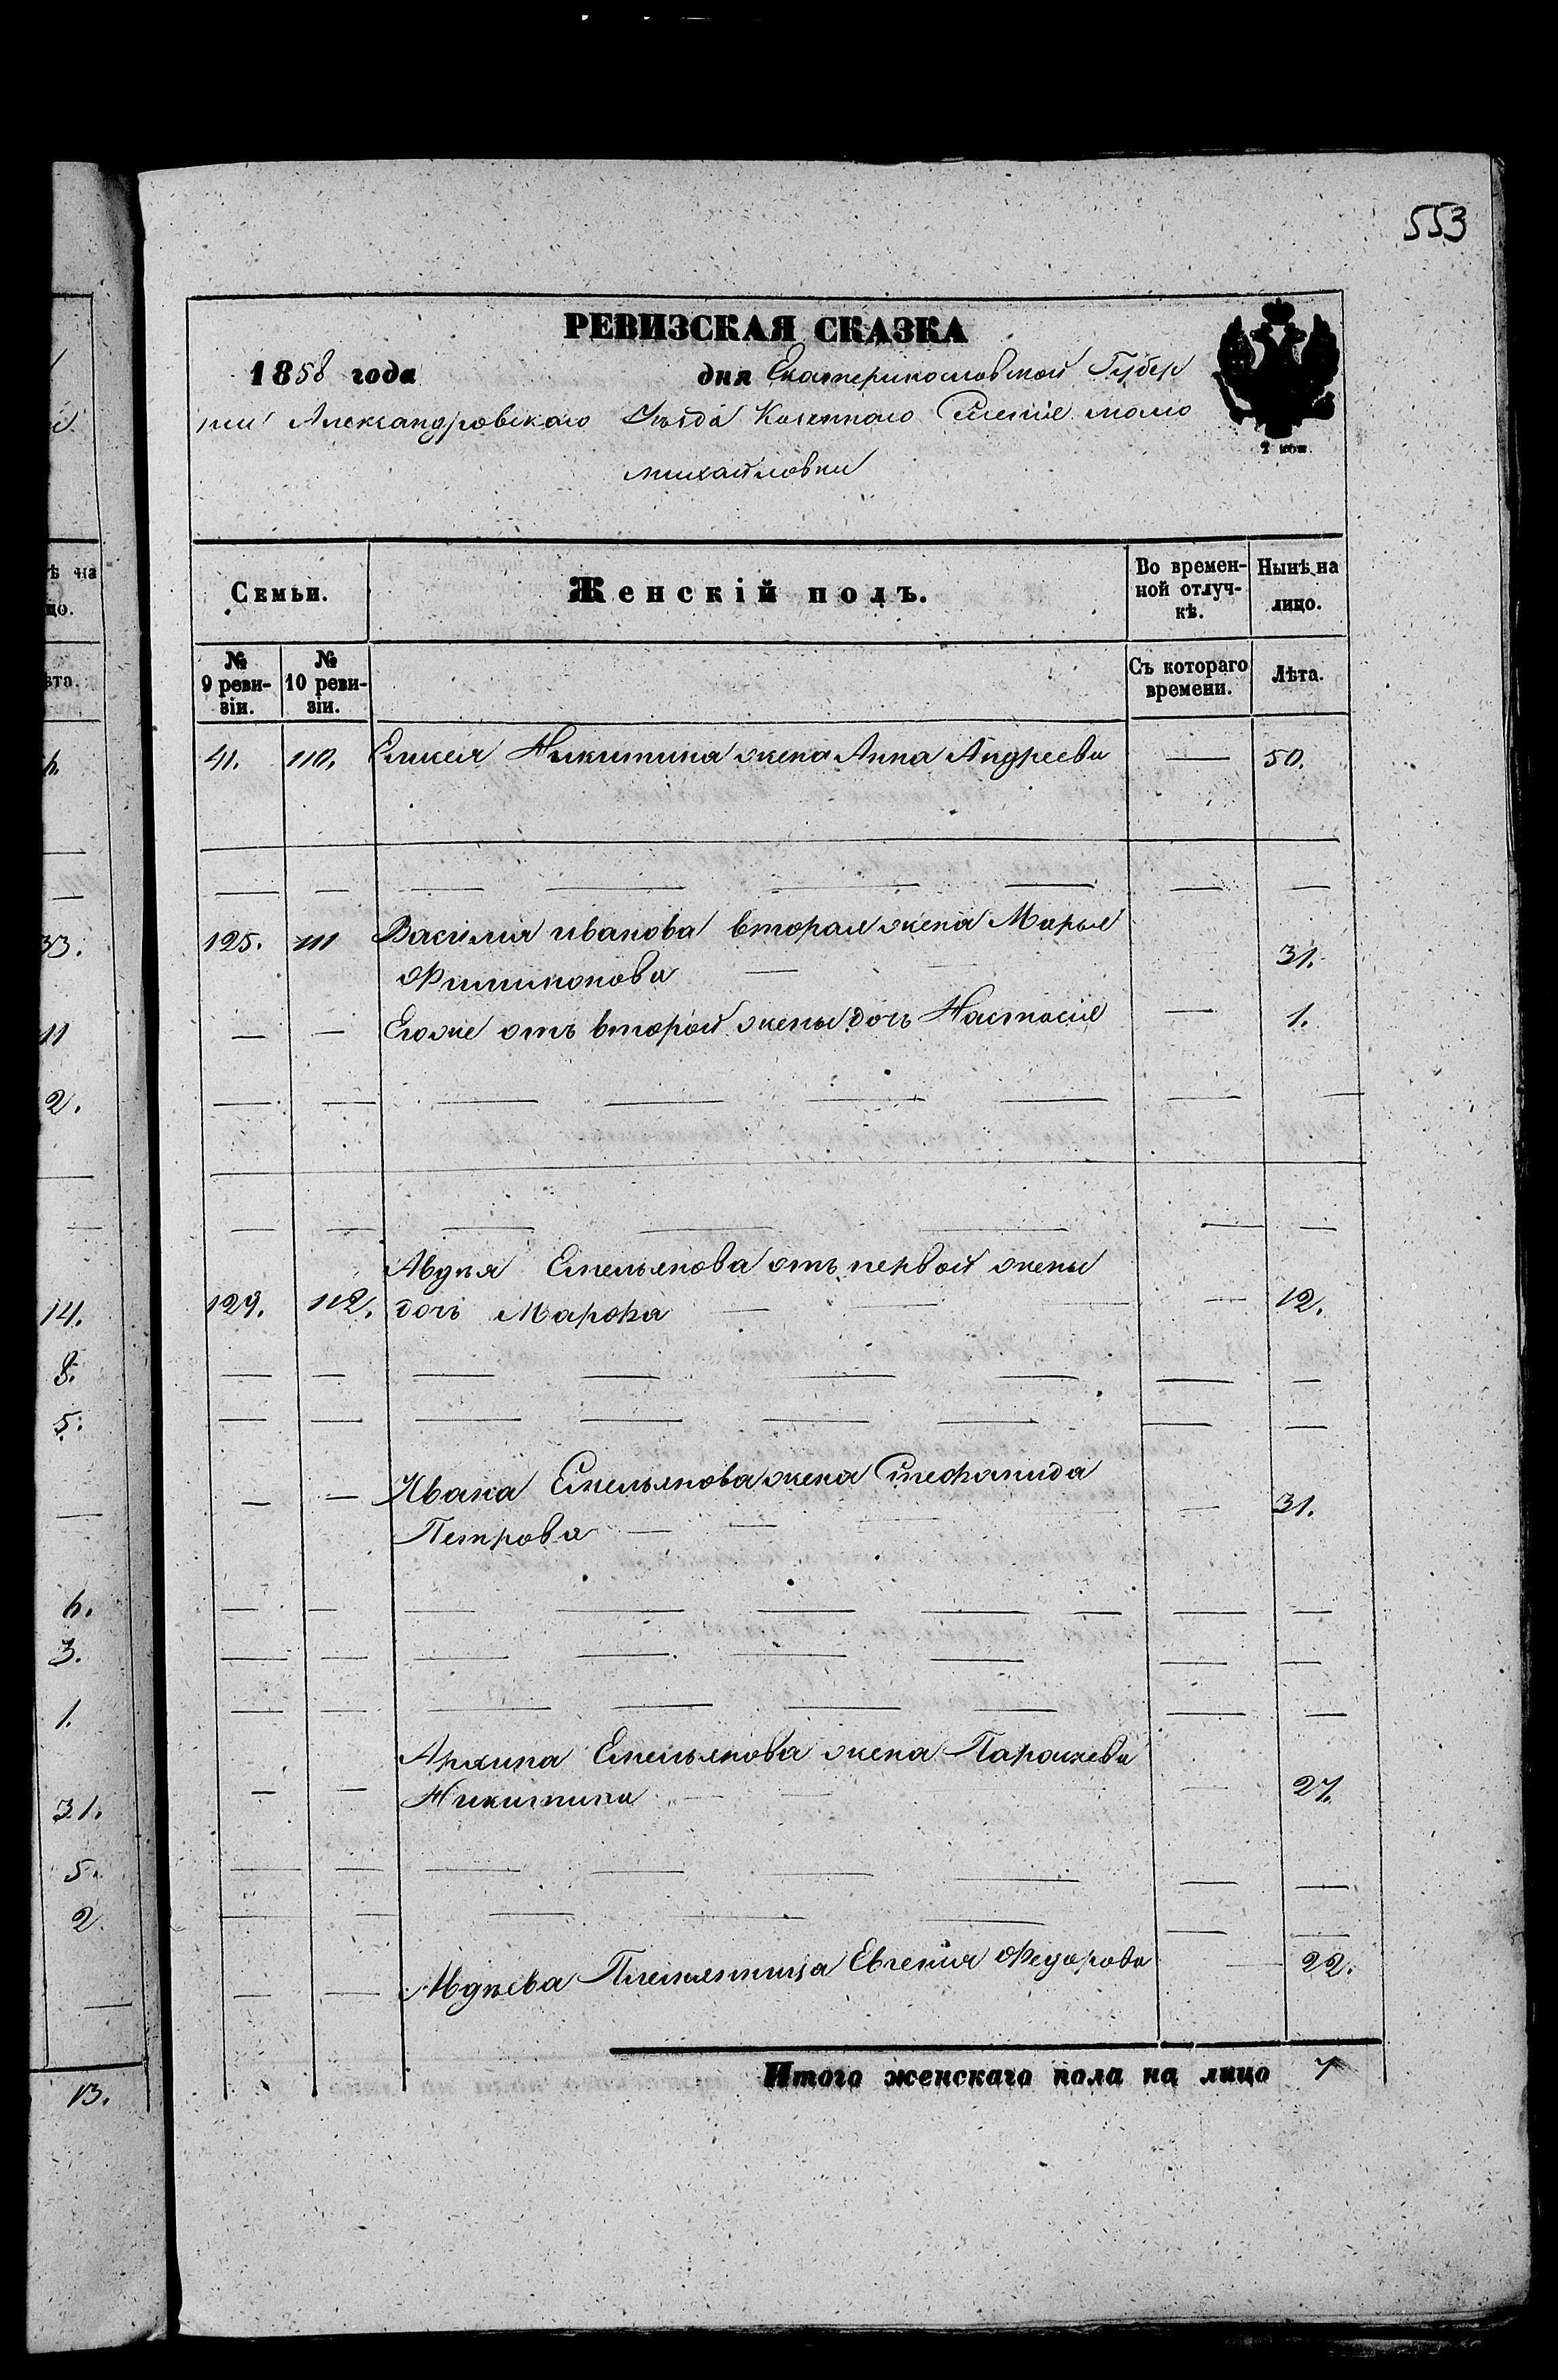 553
РЕВИЗСКАЯ СКАЗКА
1858 года дня Екатеринославской Губер
нии Александровскаго Уѣзда Казеннаго Селенiе мало
михайловки
2 коп.
Семьи. Женскій полъ. Во времен-ной отлуч-кѣ. Нынѣ на лицо.
№ 9 реви-зіи. № 10 реви-зіи. Съ котораго времени. Лѣта.
41. 110. Елисея Никитина жена Анна Андреева — 50.
125. 111 Василия иванова вторая жена Марья
Филимонова — 31.
— — Егоже отъ второй жены дочь Настасiя — 1.
Авдѣя Емельянова отъ первой жены
129. 112. дочь Марфа — 12.
— — Ивана Емельянова жена Стефанида
Петрова — 31.
Архипа Емельянова жена Параскева
— — Никитина — 27.
— — Авдѣева Племянница Евгения Федорова — 22.
Итого женскаго пола на лицо 7
ѣ на
цо.
ѣта.
33.
11
2.
14.
8.
5.
6.
3.
1.
31.
5.
2.
13.